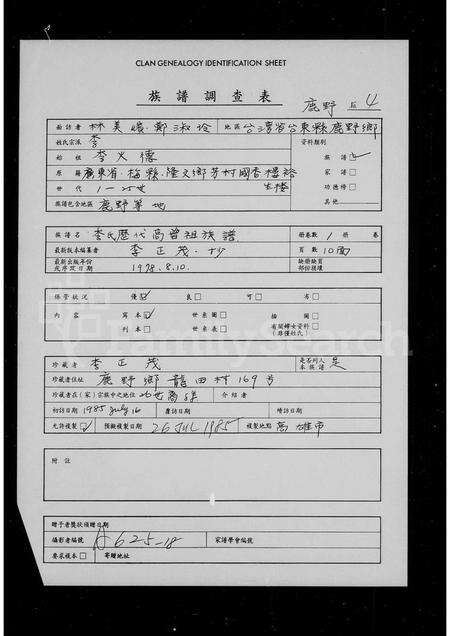 CLAN GENEALOGY IDENTIFICATION SHEET
族譜調查表
鹿野 4
面訪者 林美嬌、鄭淑玲 地區 台灣省台東縣鹿野鄉
姓氏宗派 李 資料類別
始祖 李火德 族譜☑
原籍 廣東省梅縣 家譜□
世代 1—25世 功德榜□
族譜包含地區 鹿野等地 其他
族譜名 李氏歷代高曾祖族譜 冊卷數 1 冊 卷
最新版本編纂者 李正茂·抄 頁數 10面
最新出版年份或序言日期 1978.8.10. 缺冊缺頁部份損壞
保管狀況 優☑ 良□ 可□ 劣□
內容 寫本☑ 世系圖□ 插圖□
刊本□ 世系表□ 有關婦女資料□(非僅姓氏)
珍藏者 李正茂 是否列入本族譜 是
珍藏者住址 鹿野鄉龍田村169号
珍藏者在(家)宗族中之地位 26世裔孫 介紹者
初訪日期 1985 July 16 覆訪日期 睛訪日期
允許複製☑ 預擬複製日期 26 JUL 1985 複製地點 高雄市
附註
贈予者獎狀頒贈日期
攝影者編號 A625-18 家譜學會編號
要求複本□ 寄贈地址
FamilySearch